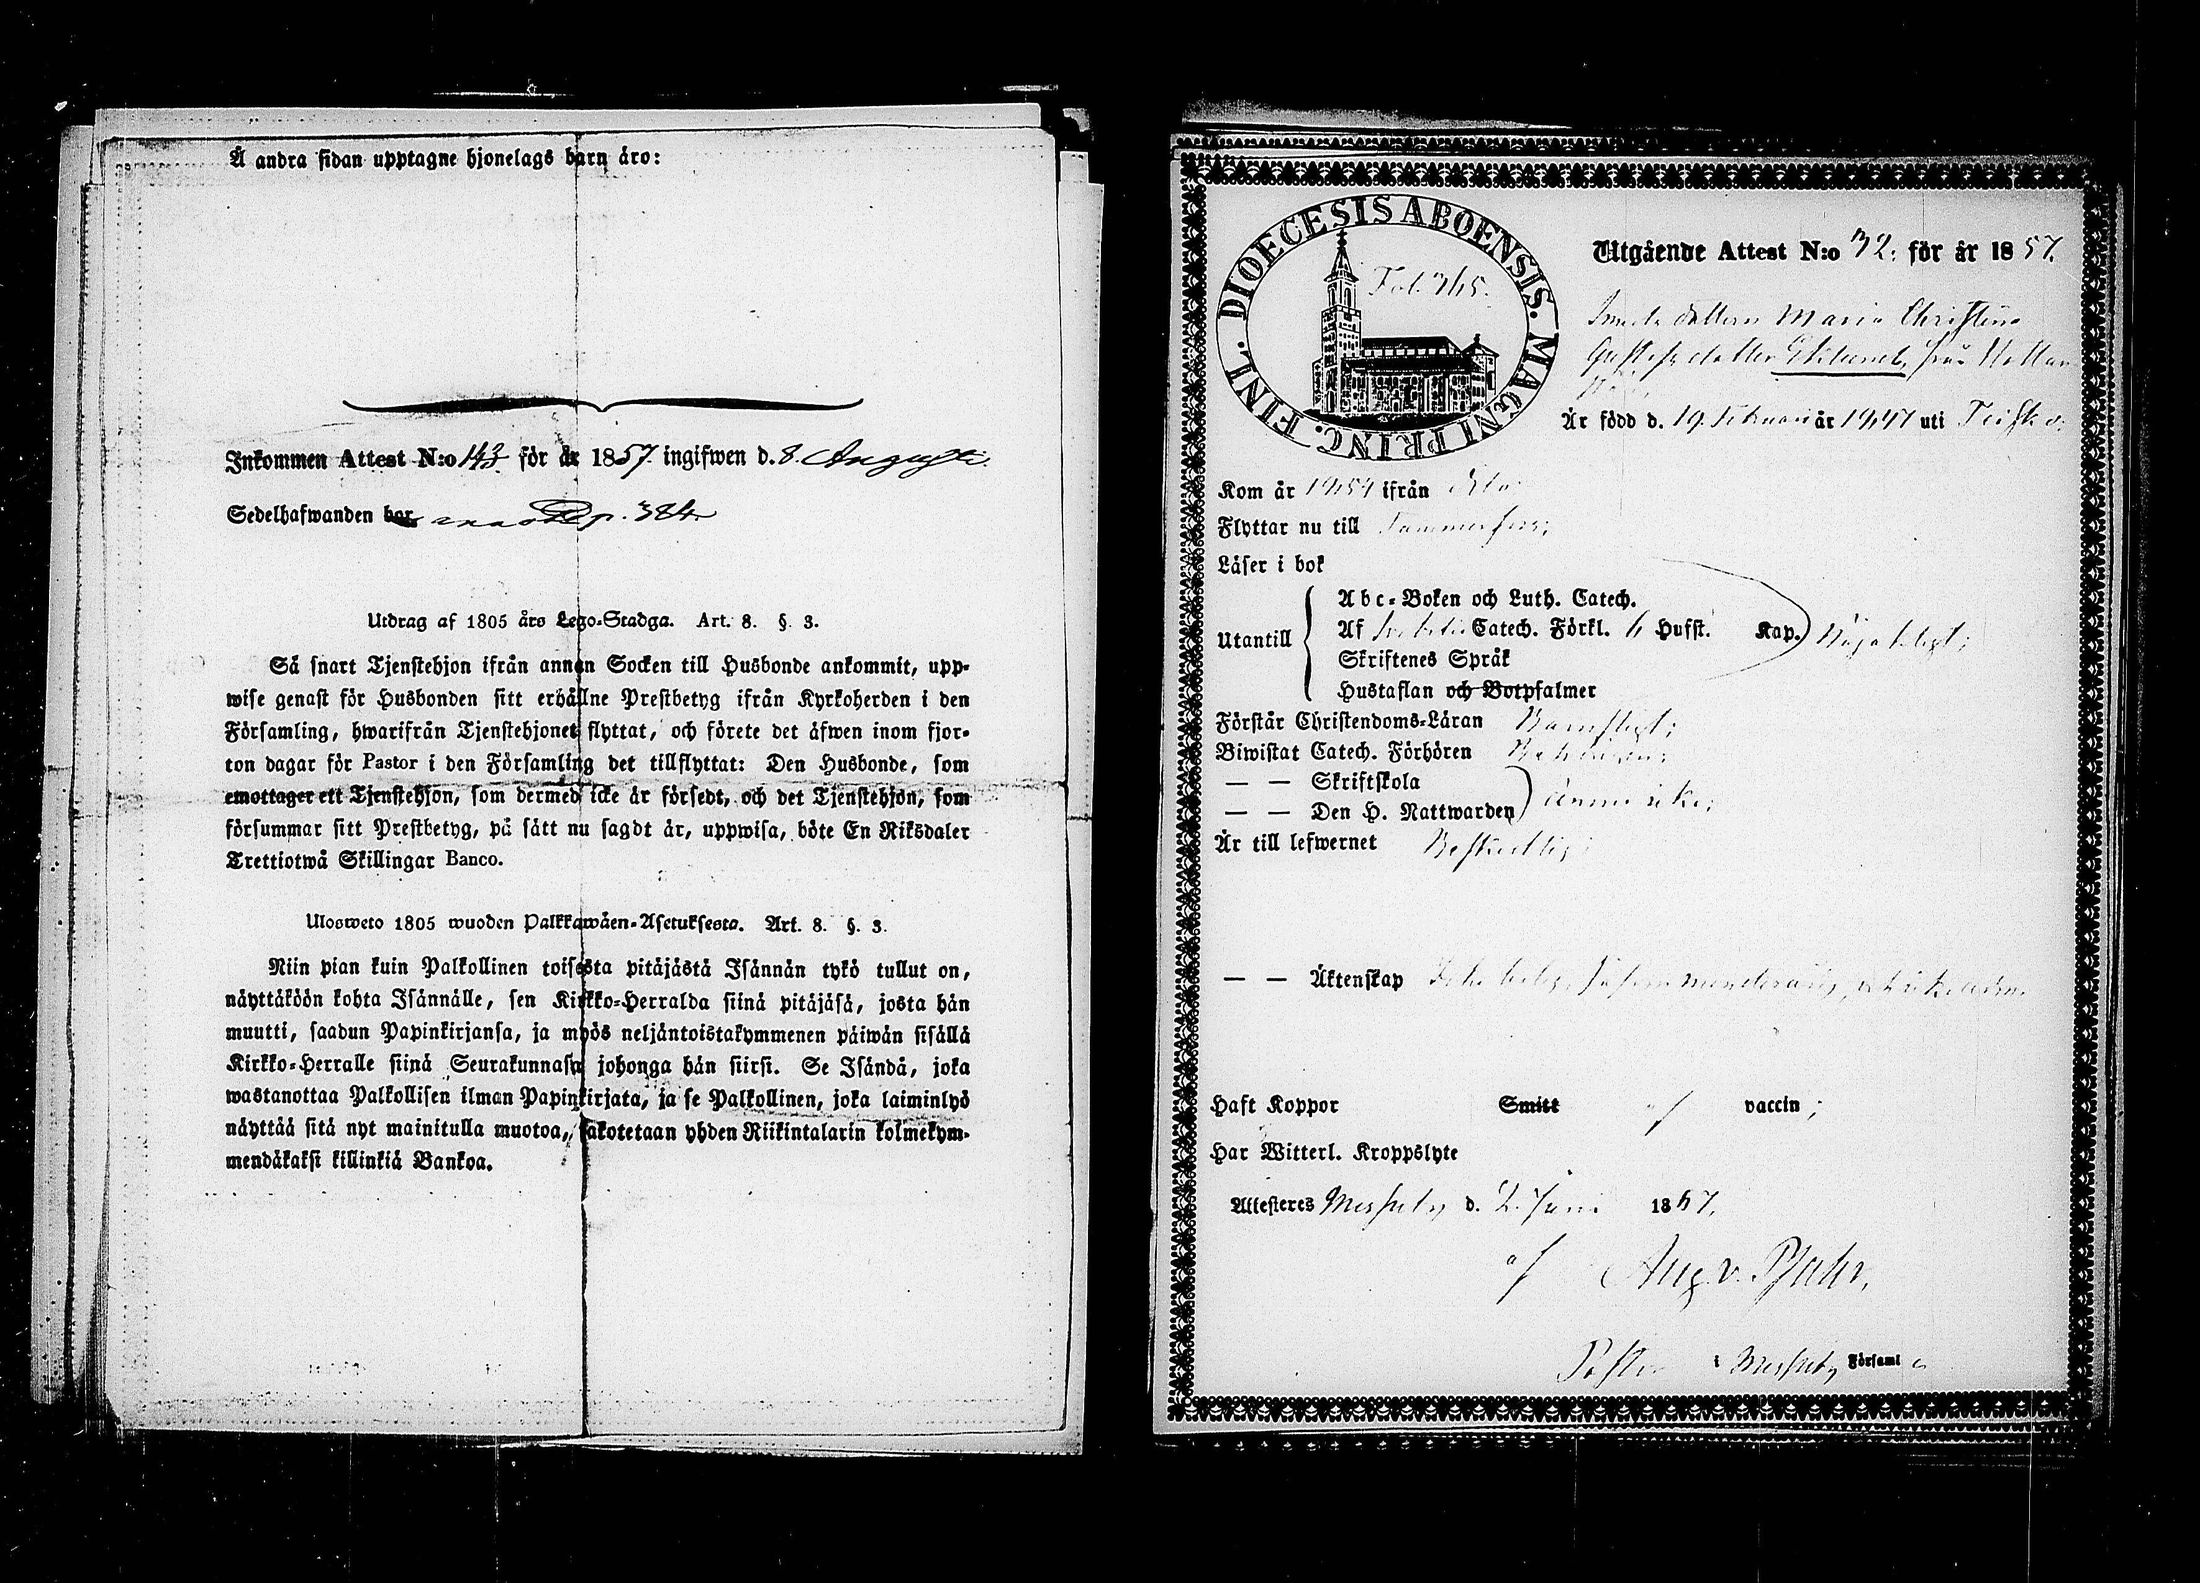 Å andra sidan upptagne hjonelags barn äro:
Inkommen Attest N:o 143. för år 1857. ingifwen d. 8. Augusti.
Sedelhafwanden bor p. 384.
Utdrag af 1805 års Lego-Stadga. Art. 8. §. 3.
Så snart Tjenstehjon ifrån annan Socken till Husbonde ankommit, upp-
wise genast för Husbonden sitt erhållne Prestbetyg ifrån Kyrkoherden i den
Församling, hwarifrån Tjenstehjonet flyttat, och förete det äfwen inom fjor-
ton dagar för Pastor i den Församling det tillflyttat: Den Husbonde, som
emottager ett Tjenstehjon, som dermed icke är försedt, och det Tjenstehjon, som
försummar sitt Prestbetyg, på sätt nu sagdt är, uppwisa, böte En Riksdaler
Trettiotwå Skillingar Banco.
Ulosweto 1805 wuoden Palkkawäen-Asetuksesta. Art. 8. §. 3.
Niin pian kuin Palkollinen toisesta pitäjästä Isännän tykö tullut on,
näyttäköön kohta Isännälle, sen Kirkko-Herralda siinä pitäjäsä, josta hän
muutti, saadun Papinkirjansa, ja myös neljäntoistakymmenen päiwän sisällä
Kirkko-Herralle siinä Seurakunnasa johonga hän siirsi. Se Isändä, joka
wastanottaa Palkollisen ilman Papinkirjata, ja se Palkollinen, joka laiminlyö
näyttää sitä nyt mainitulla muotoa, sakotetaan yhden Riikintalarin kolmekym-
mendäkaksi killinkiä Bankoa.
DIOECESIS ABOENSIS. MAGNI PRINC. FINL.
Fol. 345.
Utgående Attest N:o 32. för år 1857.
dottern Maria Christina
Gustafsdotter från
Är född d. 19. Februari år 1847 uti Teisko;
Kom år 1854 ifrån
Flyttar nu till Tammerfors;
Läser i bok
Utantill
Abc-Boken och Luth. Catech.
Af Catech. Förkl. Hufst. Kap.
Skriftenes Språk
Hustaflan och Botpsalmer
Förstår Christendoms-Läran Barnsligt;
Biwistat Catech. Förhören
— — Skriftskola
— — Den H. Nattwarden Ännu icke;
Är till lefwernet Beskedlig;
— — Äktenskap
Haft Koppor Smitt af vaccin;
Har Witterl. Kroppslyte
Attesteres Messuby d. 2. Juni 1857.
af Aug. v. Pfaler,
Pastor i Messuby Församl